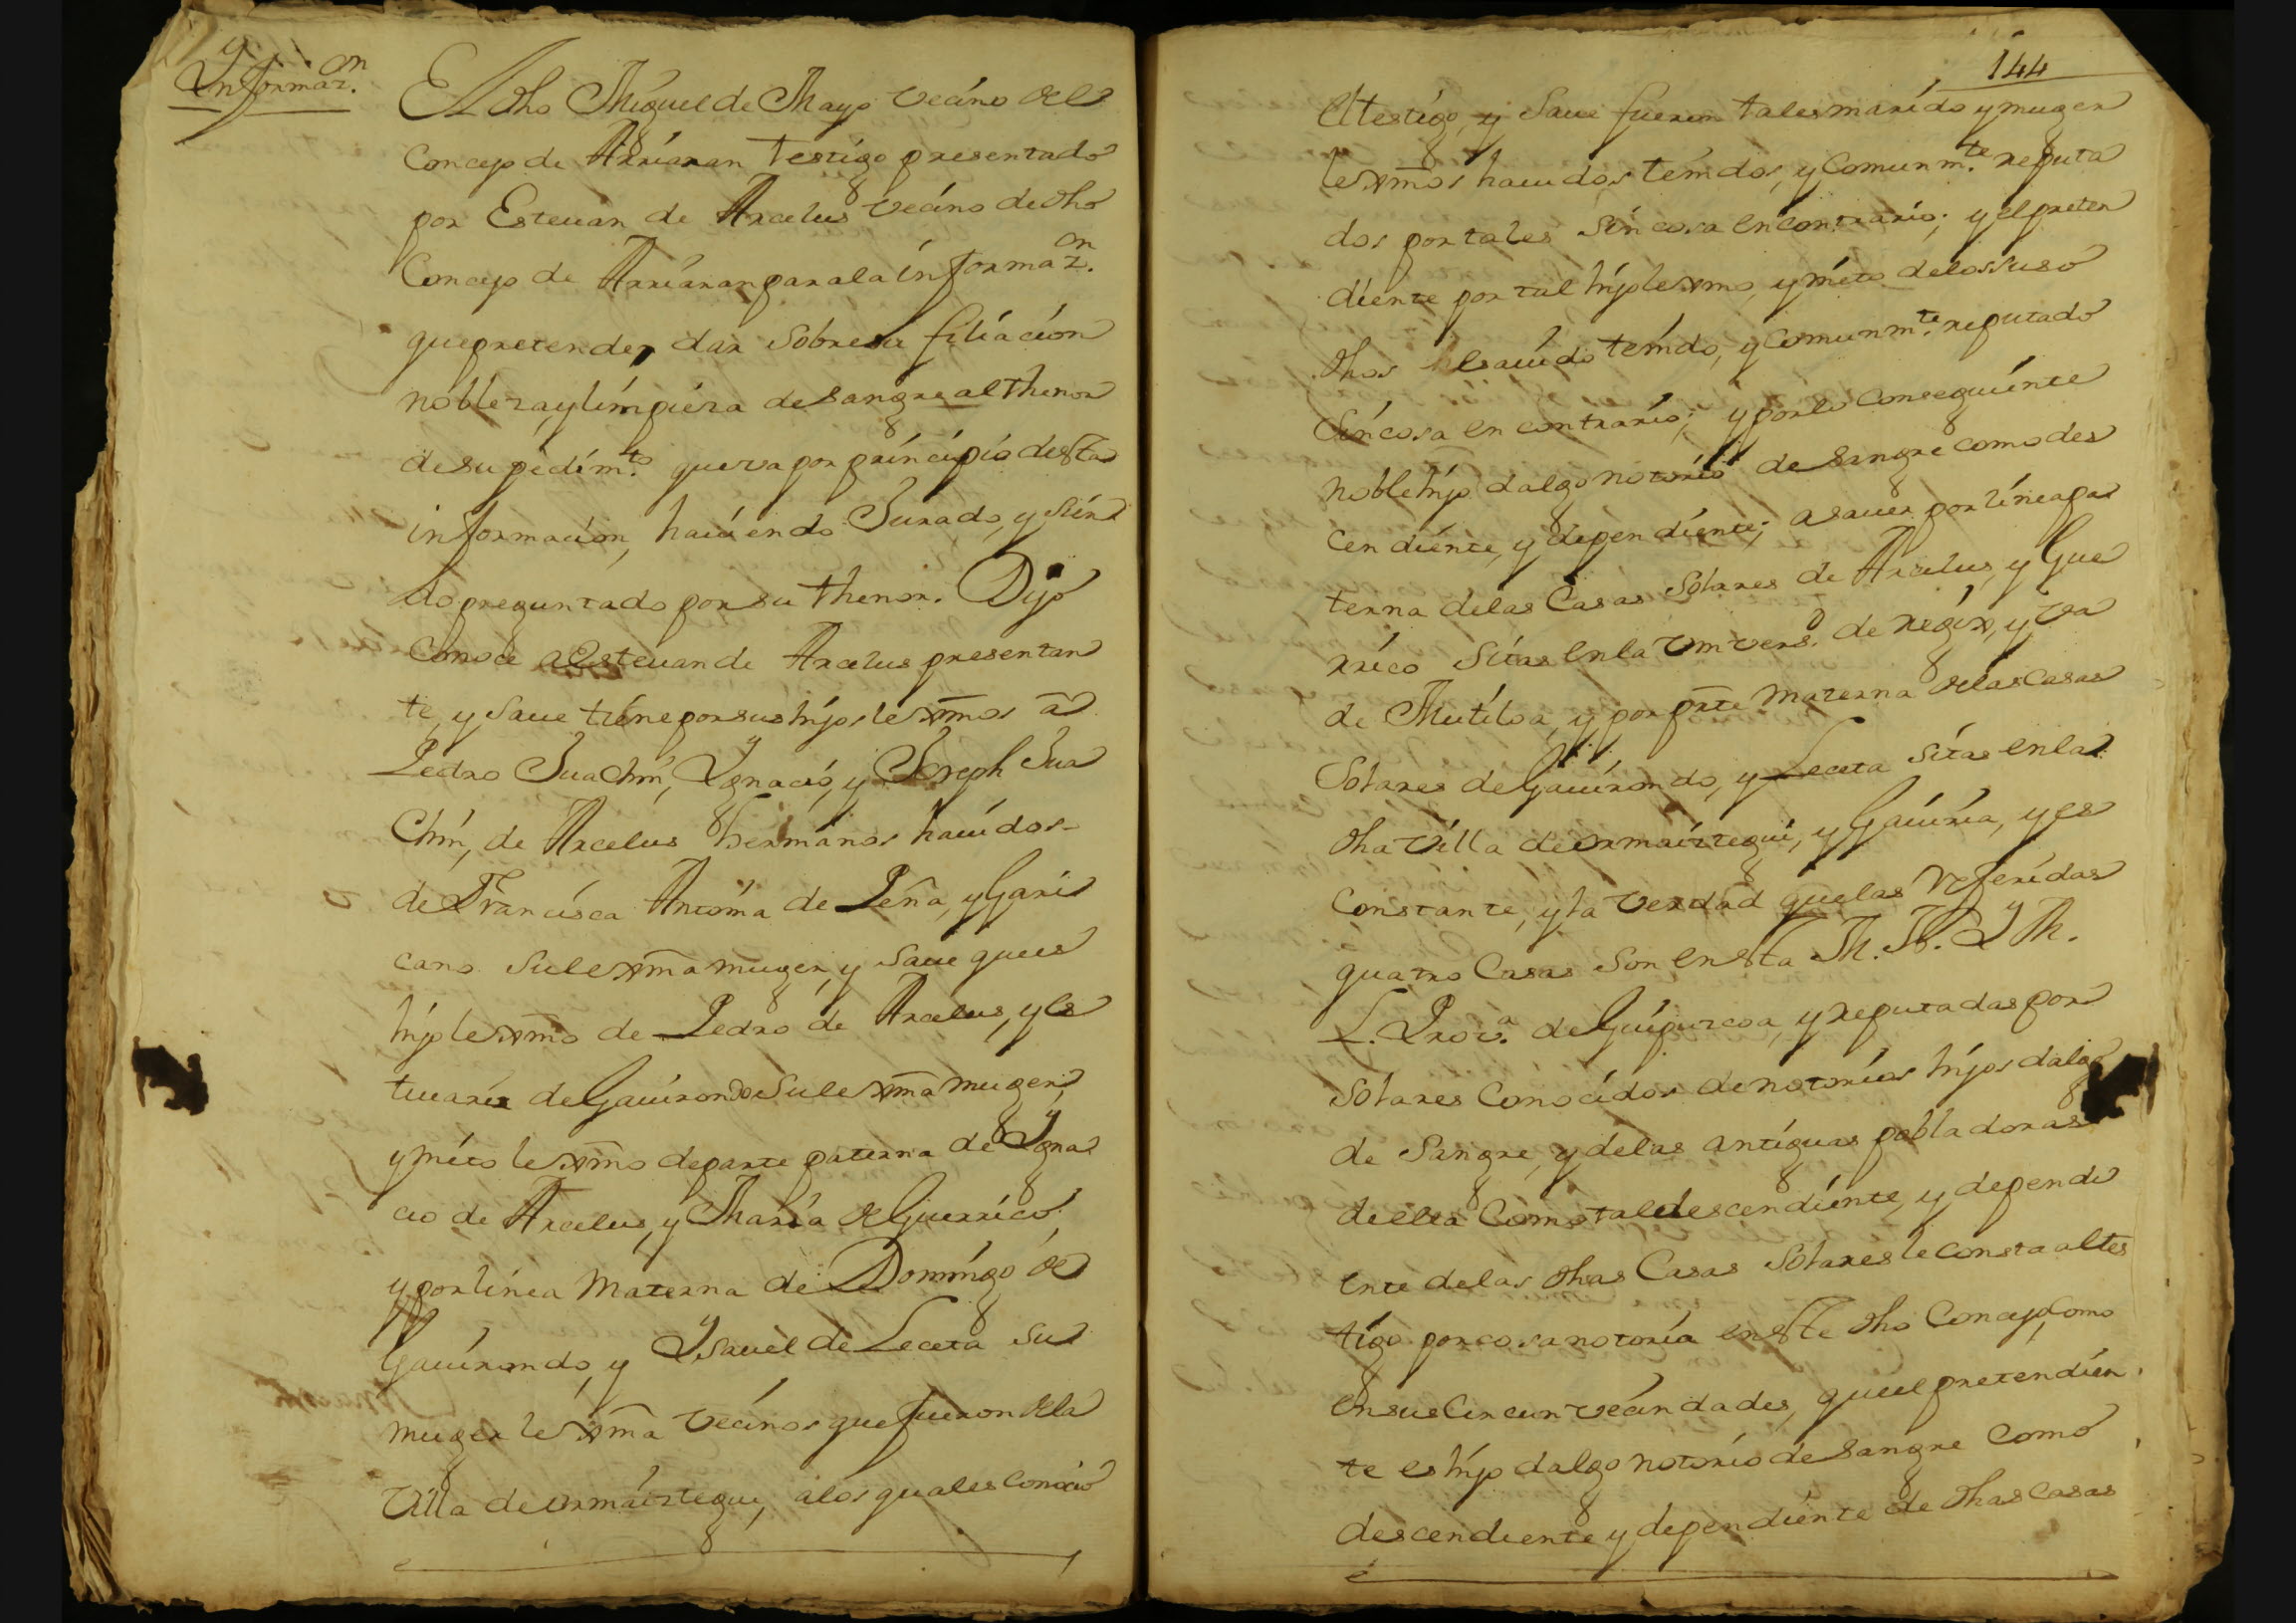 Informaz.on
El dho Miguel de Mayo vecino del
Concejo de Arriaran testigo presentado
por Esteuan de Arcelus vecino de dho
Concejo de Arriaran para la informaz.on
que pretender dar sobre su filiacion
nobleza, y limpieza de sangre al thenor
de su pedim.to que va por principio desta
informacion, hauiendo Jurado, y sien
do preguntado por su thenor. Dijo
Conoce a Esteuan de Arcelus presentan
te, y saue tiene por sus hijos lexmos a
Pedro Juachin, Ygnacio, y Joseph Jua
Chin, de Arcelus hermanos hauidos
de Francisca Antonia de Peña, y Gari
cano su lexma muger, y saue que es
hijo lexmo de Pedro de Arcelus, y es
de Gauirondo su lexma muger,
y nieto lexmo de parte paterna de Ygna
cio de Arcelus, y Maria de Guerrico,
y por linea Materna de Domingo de
Gauirondo, y Ysauel de Leceta su
muger lexma vecinos que fueron de la
Villa de Ormaiztegui, a los quales conocio
144
el testigo, y saue fueron tales marido y muger
lexmos hauidos, tenidos, y Comunm.te reputa
dos por tales sin cosa en contrario; y el preten
diente por tal hijo lexmo, y nieto de los suso
dhos hauido tenido, y comunm.te reputado
sin cosa en contrario; y por lo conseguiente
noble hijo dalgo notorio de sangre como des
cendiente, y dependiente; a sauer por linea pa
terna de las Casas Solares de Arcelus, y Gue
rrico sitas en la Univers.d de Regil, y va
de Mutiloa, y por prte Materna de las Casas
Solares de Gauirondo, y Leceta sitas en la
dha Villa de Ormaiztegui, y Gauiria, y es
constante, y la verdad que las referidas
quatro Casas son en esta M. N. Y M.
L. Prov.a de Guipuzcoa, y reputadas por
Solares Conocidos de notorios hijos dalgo
de Sangre, y de las antiguas pobladoras
de ella Como tal descendiente, y dependi
ente de las dhas Casas Solares le consta al tes
tigo por cosa notoria en este dho Concejo, Como
en sus Circunvecindades, que el pretendien
te es hijo dalgo notorio de Sangre como
descendiente y dependiente de dhas Casas